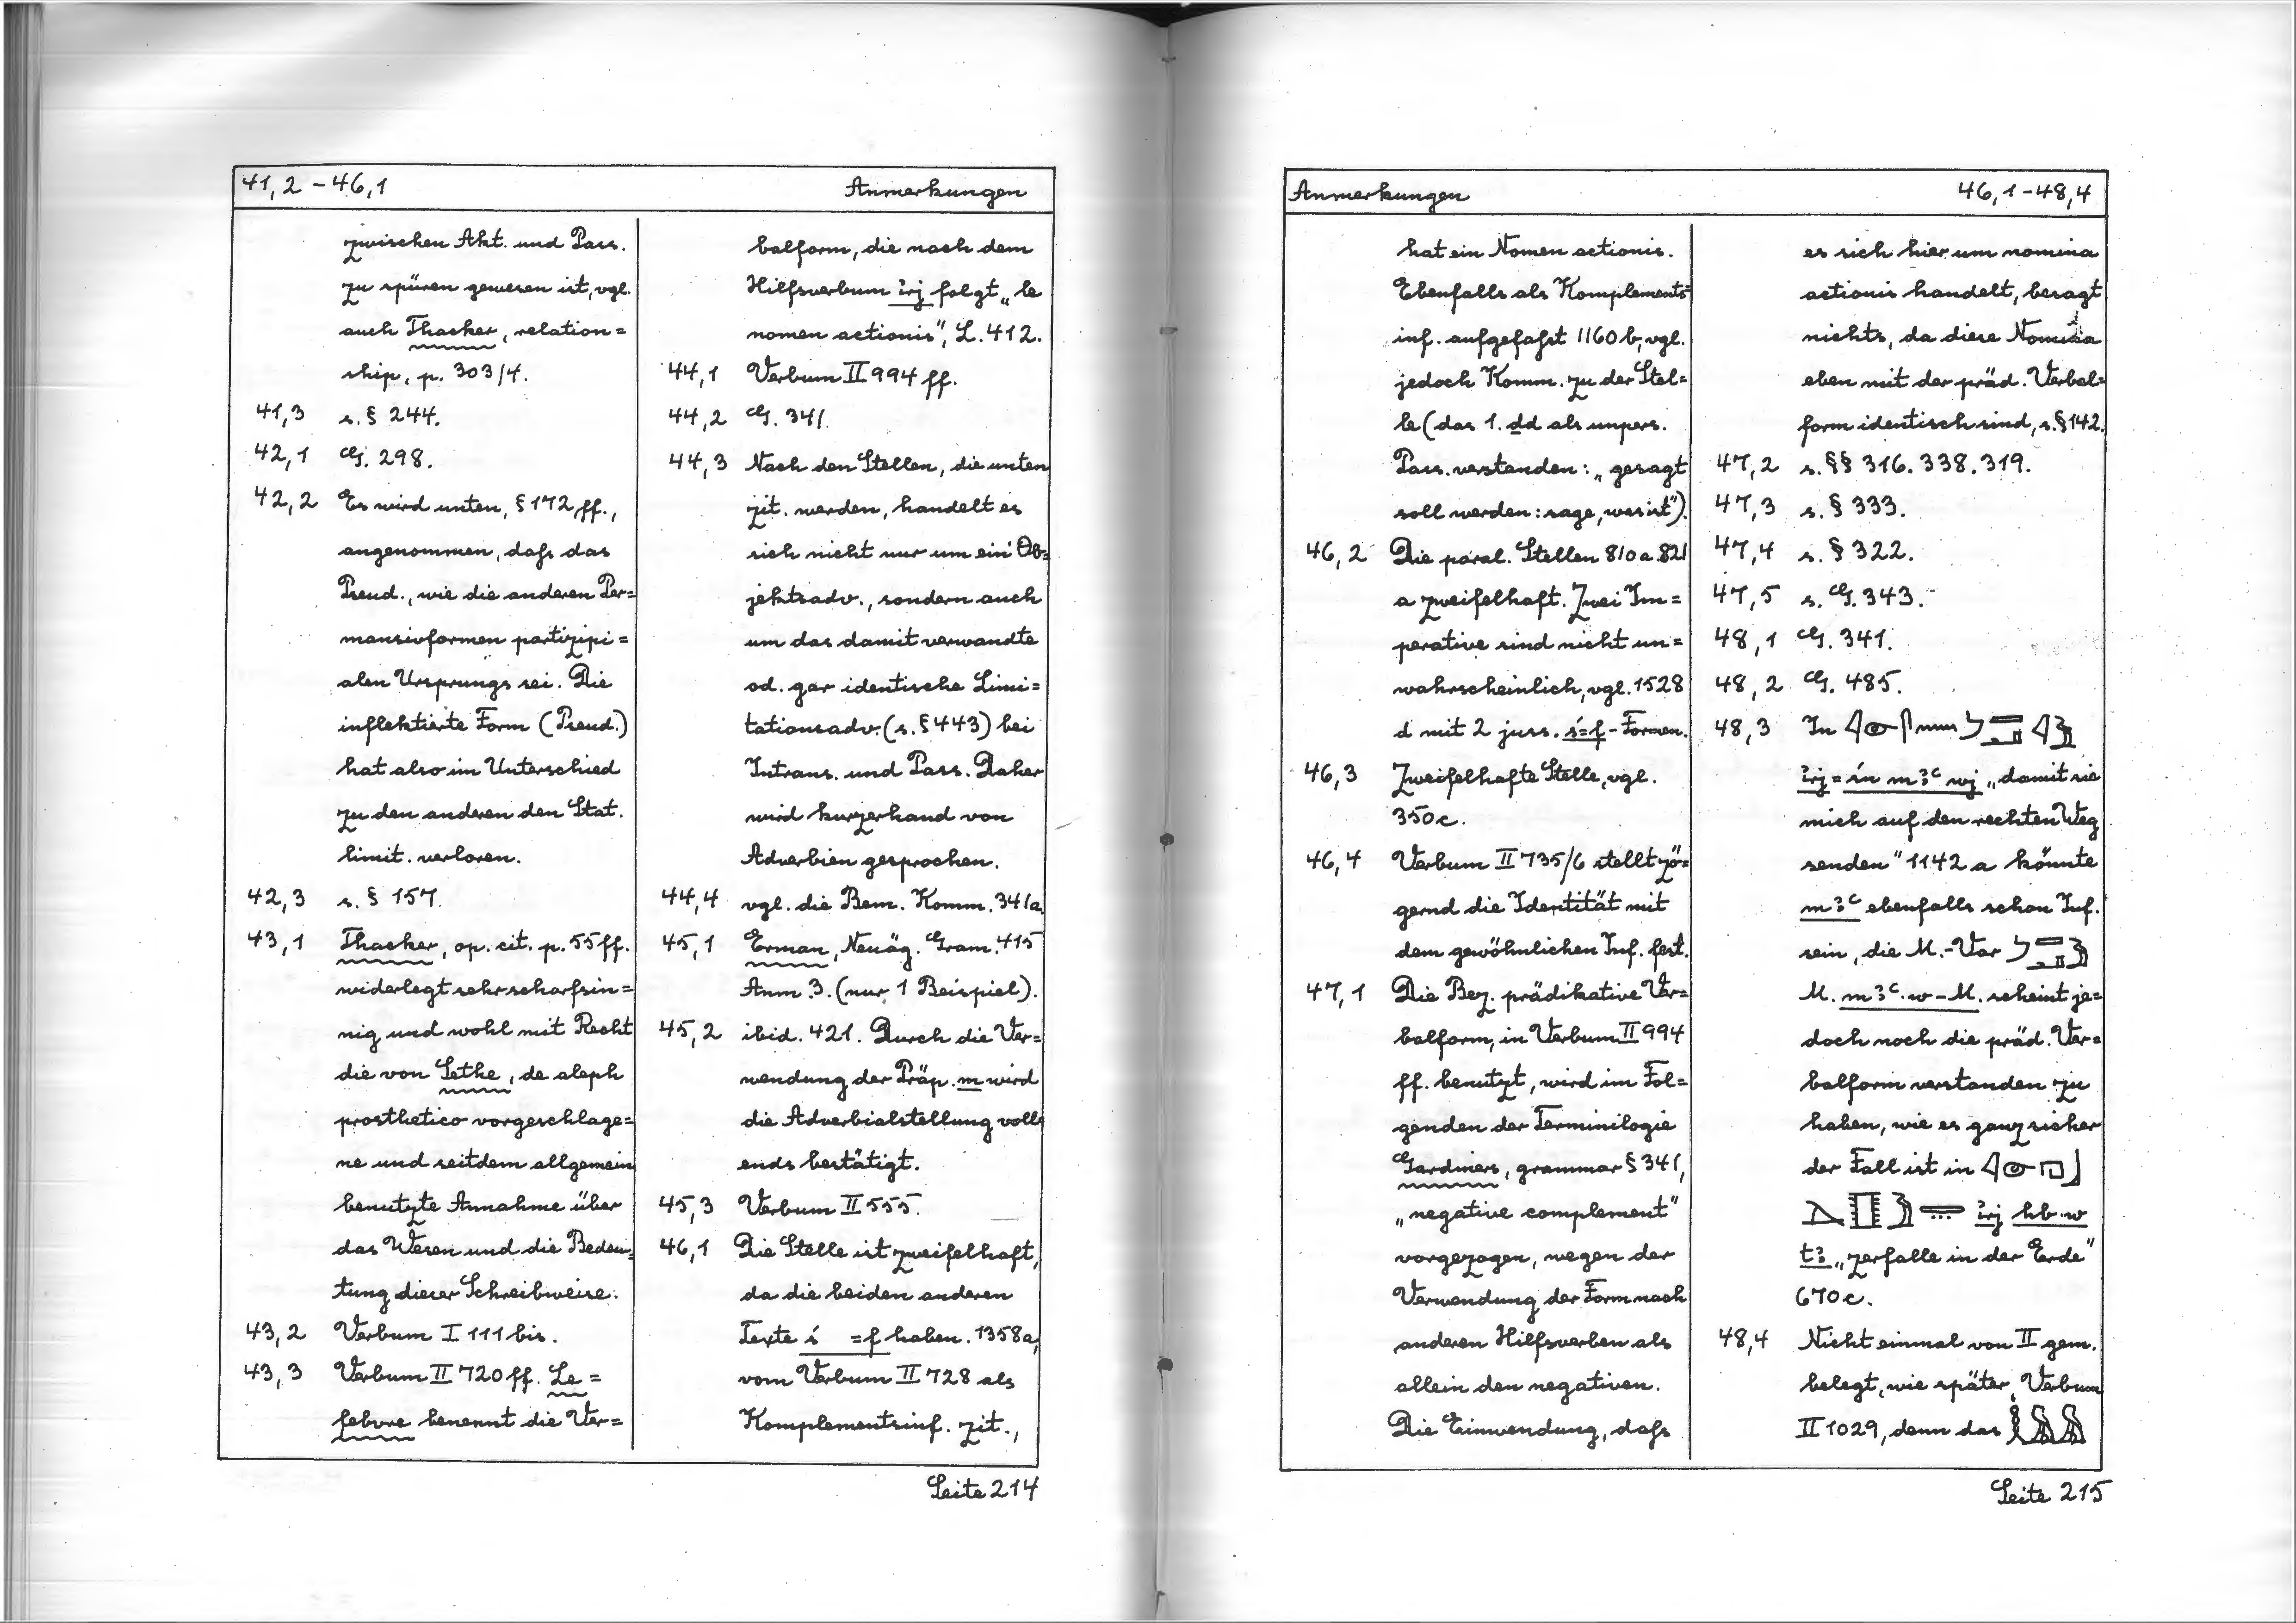 41,2 – 46,1 Anmerkungen
zwischen Akt. und Pass.
zu spüren gewesen ist, vgl.
auch Thacker, relation=
ship, p. 303/4.
41,3 s. § 244.
42,1 G. 298.
42,2 Es wird unten, § 172 ff.,
angenommen, daſs das
Pseud., wie die anderen Per=
mansivformen partizipi=
alen Ursprungs sei. Die
inflektierte Form (Pseud.)
hat also im Unterschied
zu den anderen den Stat.
limit. verloren.
42,3 s. § 157.
43,1 Thacker, op. cit. p. 55 ff.
widerlegt sehr scharfsin=
nig und wohl mit Recht
die von Sethe, de aleph
prosthetico vorgeschlage=
ne und seitdem allgemein
benutzte Annahme über
das Wesen und die Bedeu=
tung dieser Schreibweise.
43,2 Verbum I 111 bis.
43,3 Verbum II 720 ff. Le=
febvre benennt die Ver=
balform, die nach dem
Hilfsverbum ỉrj folgt „le
nomen actionis“, L. 412.
44,1 Verbum II 994 ff.
44,2 G. 341.
44,3 Nach den Stellen, die unten
zit. werden, handelt es
sich nicht nur um ein Ob=
jektsadv., sondern auch
um das damit verwandte
od. gar identische Limi=
tationsadv. (s. § 443) bei
Intrans. und Pass. Daher
wird kurzerhand von
Adverbien gesprochen.
44,4 vgl. die Bem. Komm. 341a.
45,1 Erman, Neuäg. Gram. 415
Anm. 3. (nur 1 Beispiel).
45,2 ibid. 421. Durch die Ver=
wendung der Präp. m wird
die Adverbialstellung voll=
ends bestätigt.
45,3 Verbum II 555.
46,1 Die Stelle ist zweifelhaft,
da die beiden anderen
Texte ś =f haben. 1358a,
vom Verbum II 728 als
Komplementsinf. zit.,
Seite 214
Anmerkungen 46,1 – 48,4
hat ein Nomen actionis.
Ebenfalls als Komplements=
inf. aufgefaſst 1160 b, vgl.
jedoch Komm. zu der Stel=
le (das 1. dd als unpers.
Pass. verstanden: „gesagt
soll werden: sage, was ist“).
46,2 Die paral. Stellen 810 a. 821
a zweifelhaft. Zwei Im=
perative sind nicht un=
wahrscheinlich, vgl. 1528
d mit 2 juss. ś=f - Formen.
46,3 Zweifelhafte Stelle, vgl.
350c.
46,4 Verbum II 735/6 stellt zö=
gernd die Identität mit
dem gewöhnlichen Inf. fest.
47,1 Die Bez. prädikative Ver=
balform, in Verbum II 994
ff. benutzt, wird im Fol=
genden der Terminilogie
Gardiners, grammar § 341,
„negative complement“
vorgezogen, wegen der
Verwendung der Form nach
anderen Hilfsverben als
allein den negativen.
Die Einwendung, daſs
es sich hier um nomina
actionis handelt, besagt
nichts, da diese Nomina
eben mit der präd. Verbal=
form identisch sind, s. § 142.
47,2 s. §§ 316. 338. 319.
47,3 s. § 333.
47,4 s. § 322.
47,5 s. G. 343.
48,1 G. 341.
48,2 G. 485.
48,3 In
ỉrj=śn mꜣꜥ wj „damit sie
mich auf den rechten Weg
senden“ 1142 a könnte
mꜣꜥ ebenfalls schon Inf.
sein, die M.-Var
M. mꜣꜥ.w – M. scheint je=
doch noch die präd. Ver=
balform verstanden zu
haben, wie es ganz sicher
der Fall ist in
ỉrj hb.w
tꜣ „zerfalle in der Erde“
670c.
48,4 Nicht einmal von II gem.
belegt, wie später, Verbum
II 1029, denn das
Seite 215